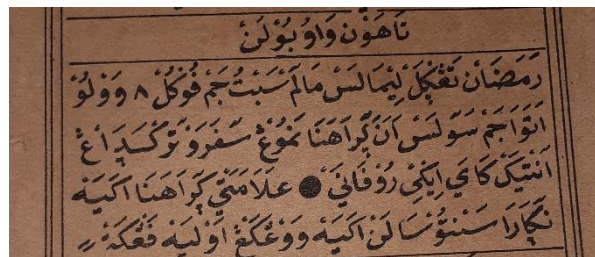 تاهون واو بولن
رمضان تڠكل ليمالس مالم سبت جم فوكل ٨ وولو
اتوا جم سولس ان ڮراهنا نموڠ سفرو تركسدا غ
انتيك كاي ايكي روفاني ● علامتي ڮراهنا اكيه
نڮارا سنتوسا لن اكيه ووڠكڠ اوليه فڠكة